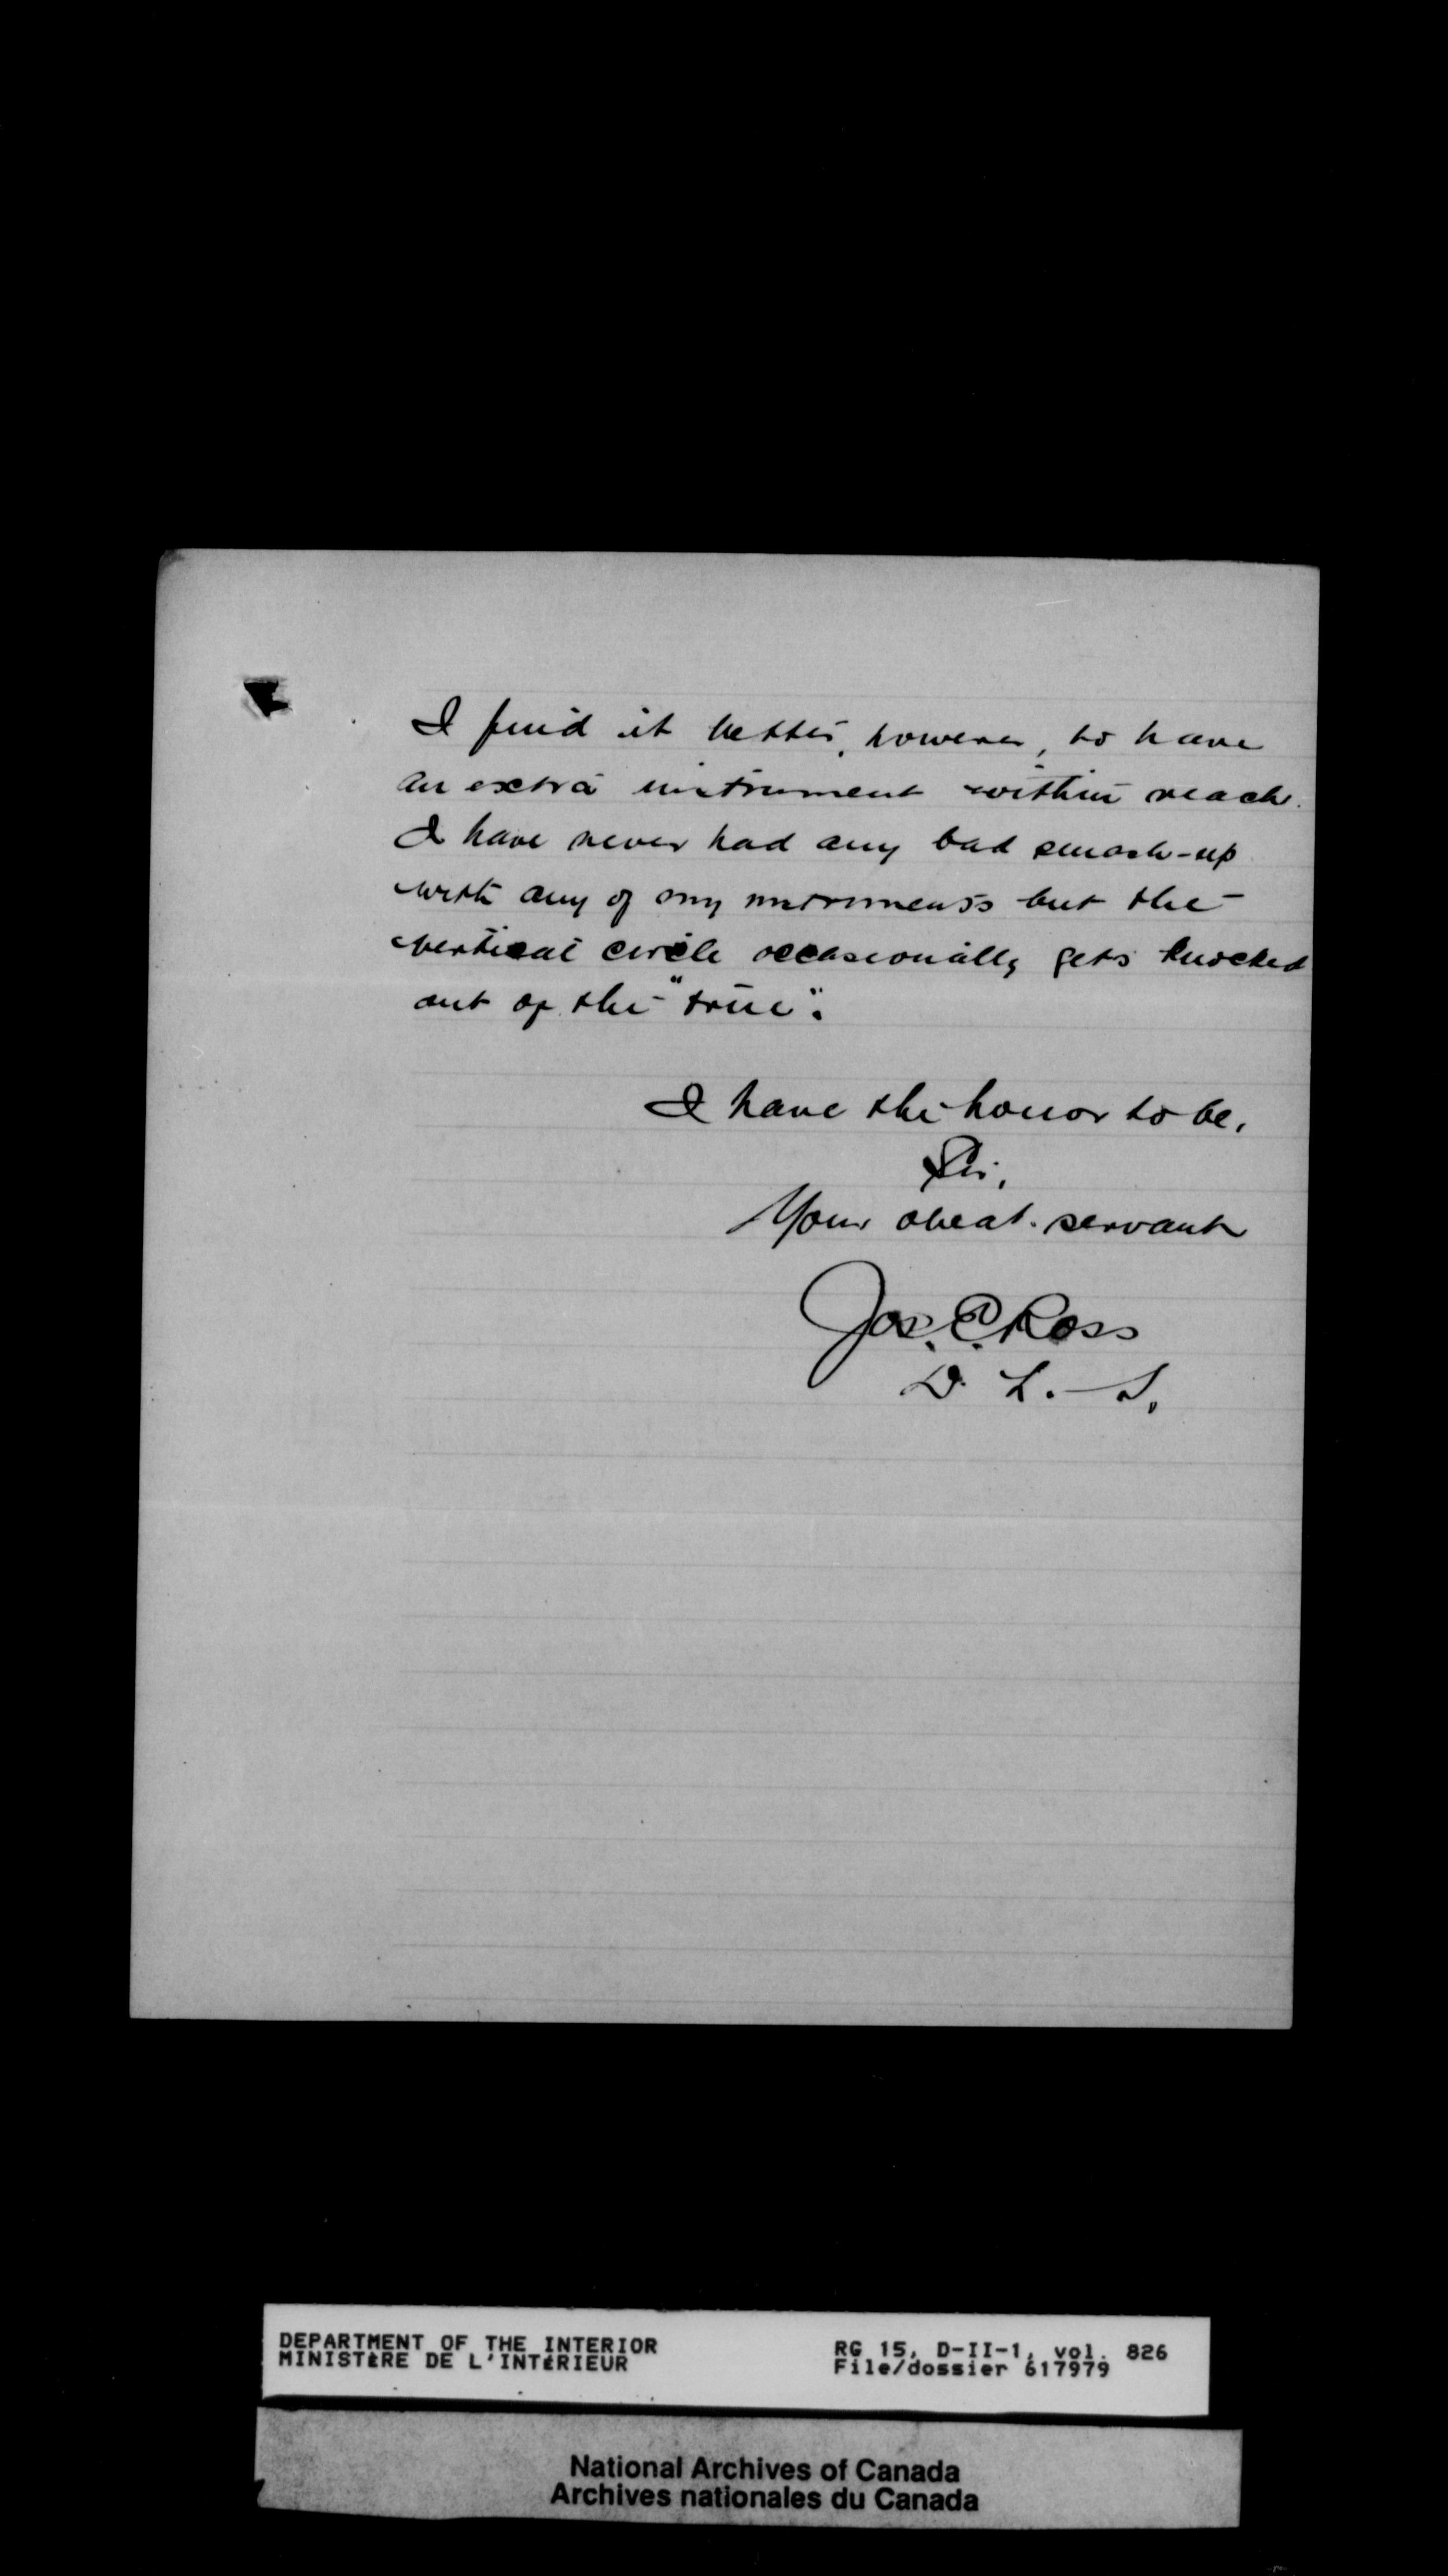 I find it better, however, to have
an extra instrument within reach.
I have never had any bad smash-up
with any of my instruments but the
vertical circle occasionally gets knocked
out of the "true".
I have the honor to be,
Sir,
Your obedt. servant
Jos. E. Ross
D. L. S.
DEPARTMENT OF THE INTERIOR
MINISTÈRE DE L'INTÉRIEUR
RG 15, D-II-1, vol. 826
File/dossier 617979
National Archives of Canada
Archives nationales du Canada